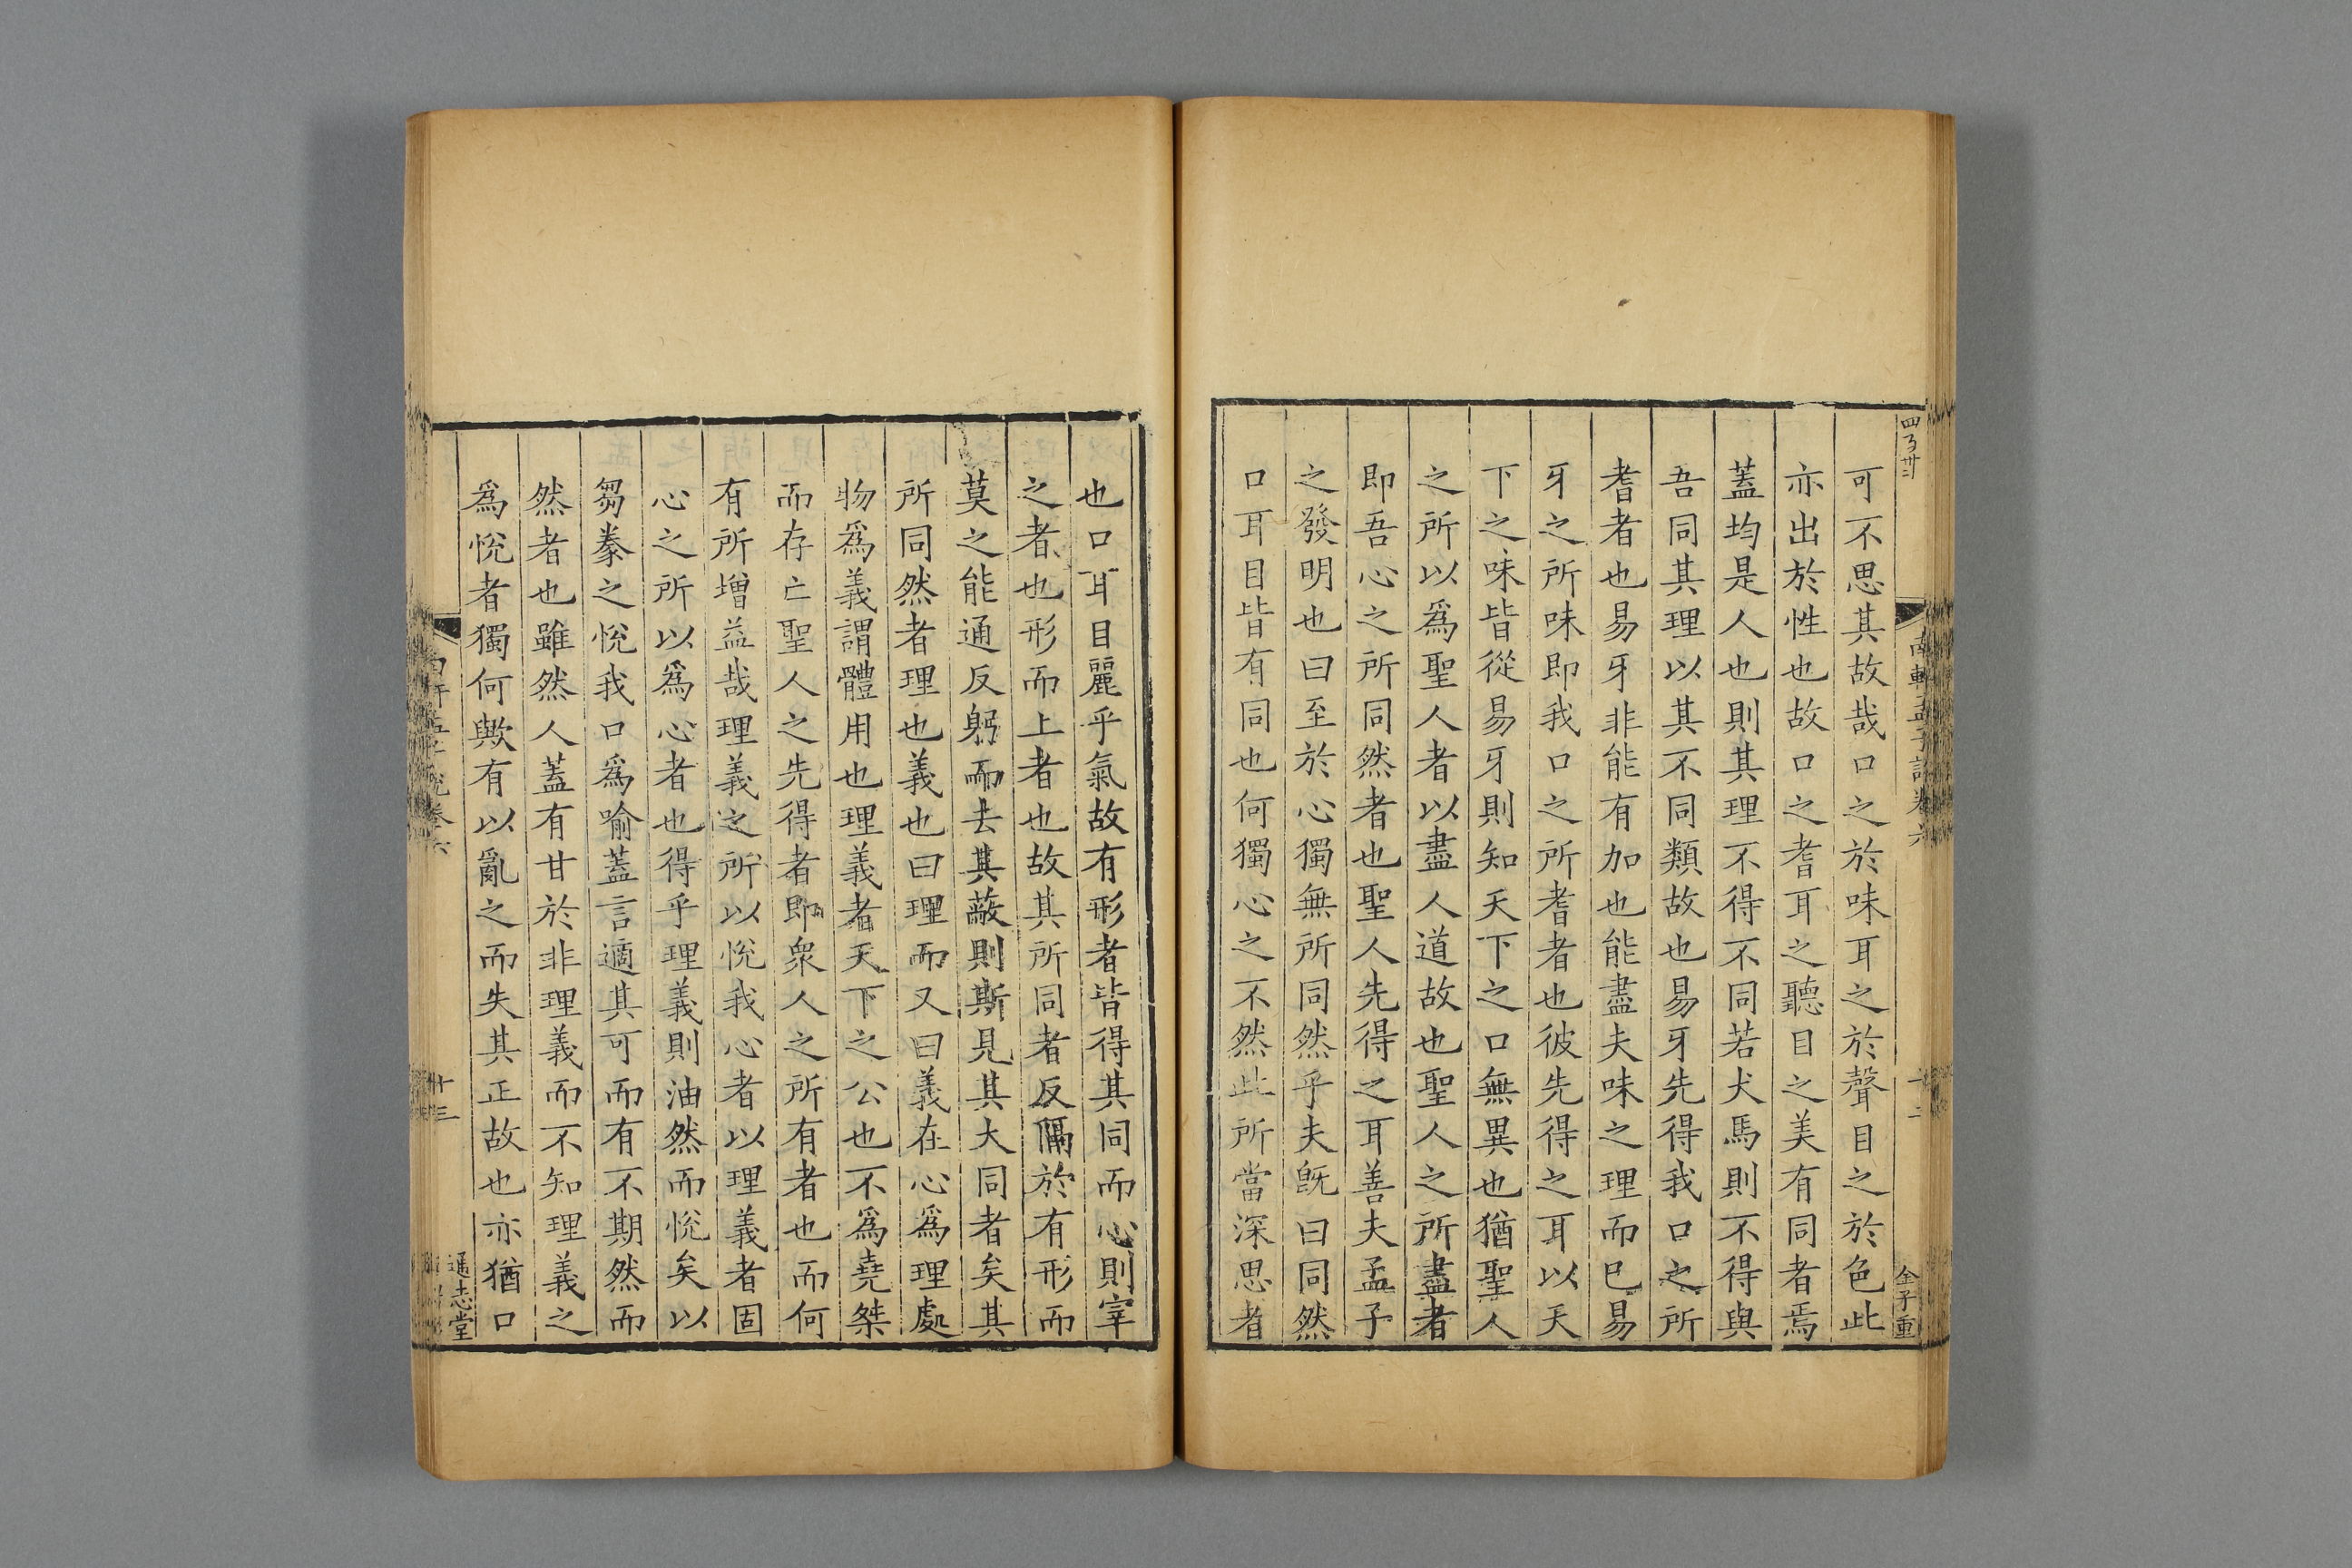 可不思其故哉口之於味耳之於聲目之於色此
亦出於性也故口之耆耳之聽目之美有同者焉
蓋均是人也則其理不得不同若犬馬則不得與
吾同其理以其不同類故也易牙先得我口之所
耆者也易牙非能有加也能盡夫味之理而巳易
牙之所味即我口之所耆者也彼先得之耳以天
下之味皆從易牙則知天下之口無異也猶聖人
之所以爲聖人者以盡人道故也聖人之所盡者
即吾心之所同然者也聖人先得之耳善夫孟子
之發明也曰至於心獨無所同然乎夫旣曰同然
口耳目皆有同也何獨心之不然此所當深思者
金子重
也口耳目麗乎氣故有形者皆得其同而心則宰
之者也形而上者也故其所同者反隔於有形而
莫之能通反躬而去其蔽則斯見其大同者矣其
所同然者理也義也曰理而又曰義在心爲理處
物爲義謂體用也理義者天下之公也不爲堯桀
而存亡聖人之先得者即衆人之所有者也而何
有所增益哉理義之所以悅我心者以理義者固
心之所以爲心者也得乎理義則油然而悅矣以
芻豢之悅我口爲喻蓋言適其可而有不期然而
然者也雖然人蓋有甘於非理義而不知理義之
爲悅者獨何歟有以亂之而失其正故也亦猶口
十三
通志堂